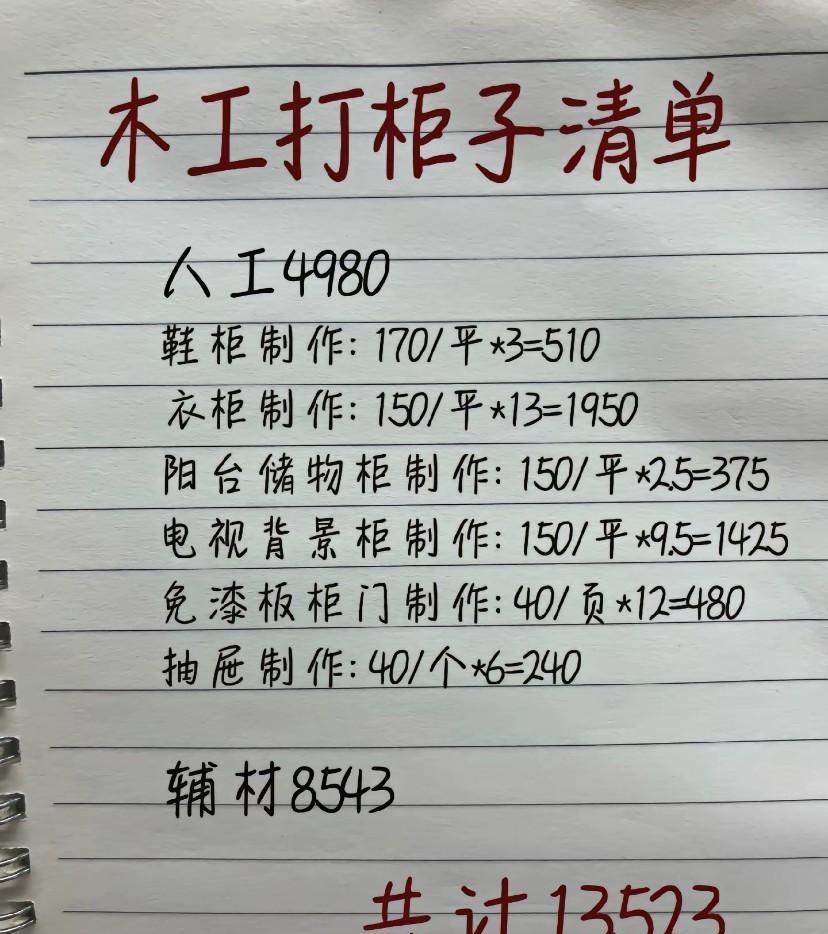 木工打柜子清单
人工4980
鞋柜制作: 170/平*3=510
衣柜制作: 150/平*13=1950
阳台储物柜制作: 150/平*2.5=375
电视背景柜制作: 150/平*9.5=1425
免漆板柜门制作: 40/页*12=480
抽屉制作: 40/个*6=240
辅材8543
共计13523